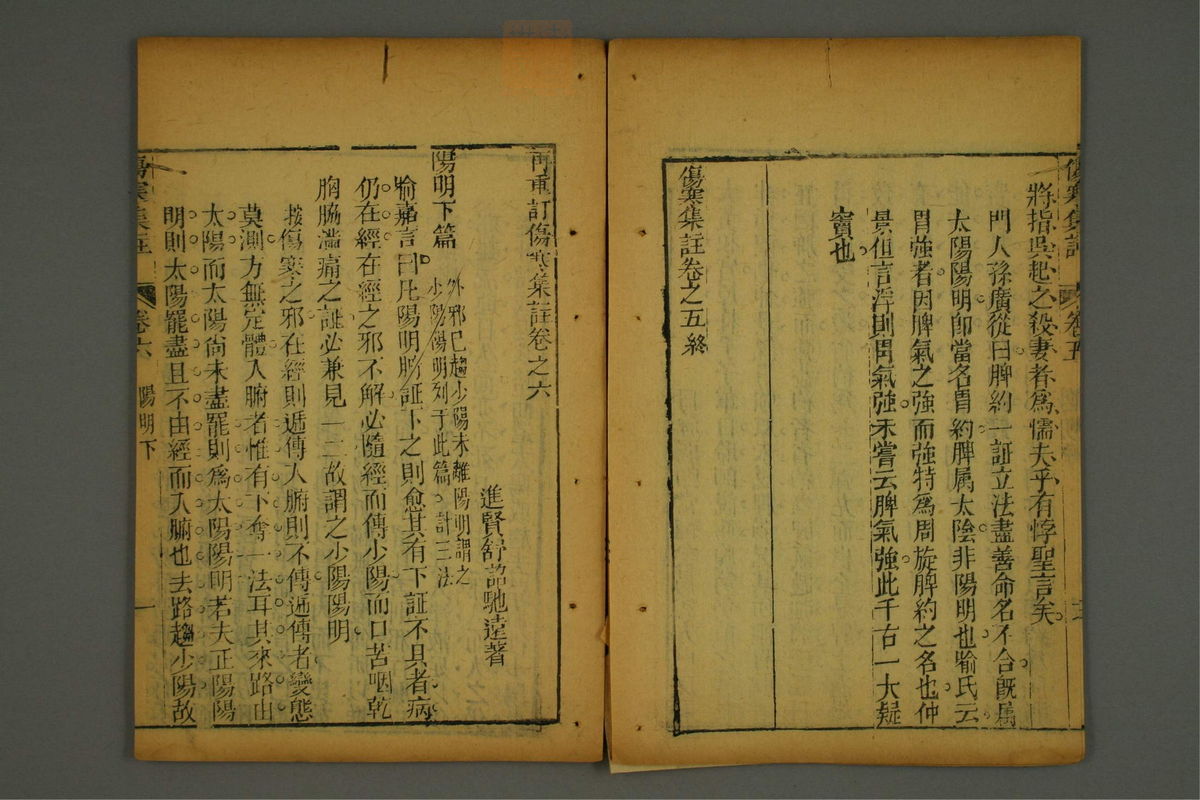 傷寒集註 卷五
將指吳起之殺妻者爲懦夫乎有悖聖言矣
門人孫廣從曰脾約一証立法盡善命名不合既屬
太陽陽明卽當名胃約脾属太陰非陽明也喻氏云
胃強者因脾氣之強而強特爲周旋脾約之名也仲
景但言浮則胃氣強未嘗云脾氣強此千古一大疑
竇也
傷寒集註卷之五終
再重訂傷寒集註卷之六
進賢舒詔馳遠著
陽明下篇
外邪已趨少陽未離陽明謂之
少陽陽明列于此篇計三法
喻嘉言曰凡陽明腑証下之則愈其有下証不具者病
仍在經在經之邪不解必隨經而傳少陽而口苦咽乾
胸脇滿痛之証必兼見一二故謂之少陽陽明
按傷寒之邪在經則遞傳入腑則不傳遞傳者變態
莫測方無定體入腑者惟有下奪一法耳其來路由
太陽而太陽尙未盡罷則爲太陽陽明若夫正陽陽
明則太陽罷盡且不由經而入腑也去路趨少陽故
傷寒集註 卷六 陽明下 一